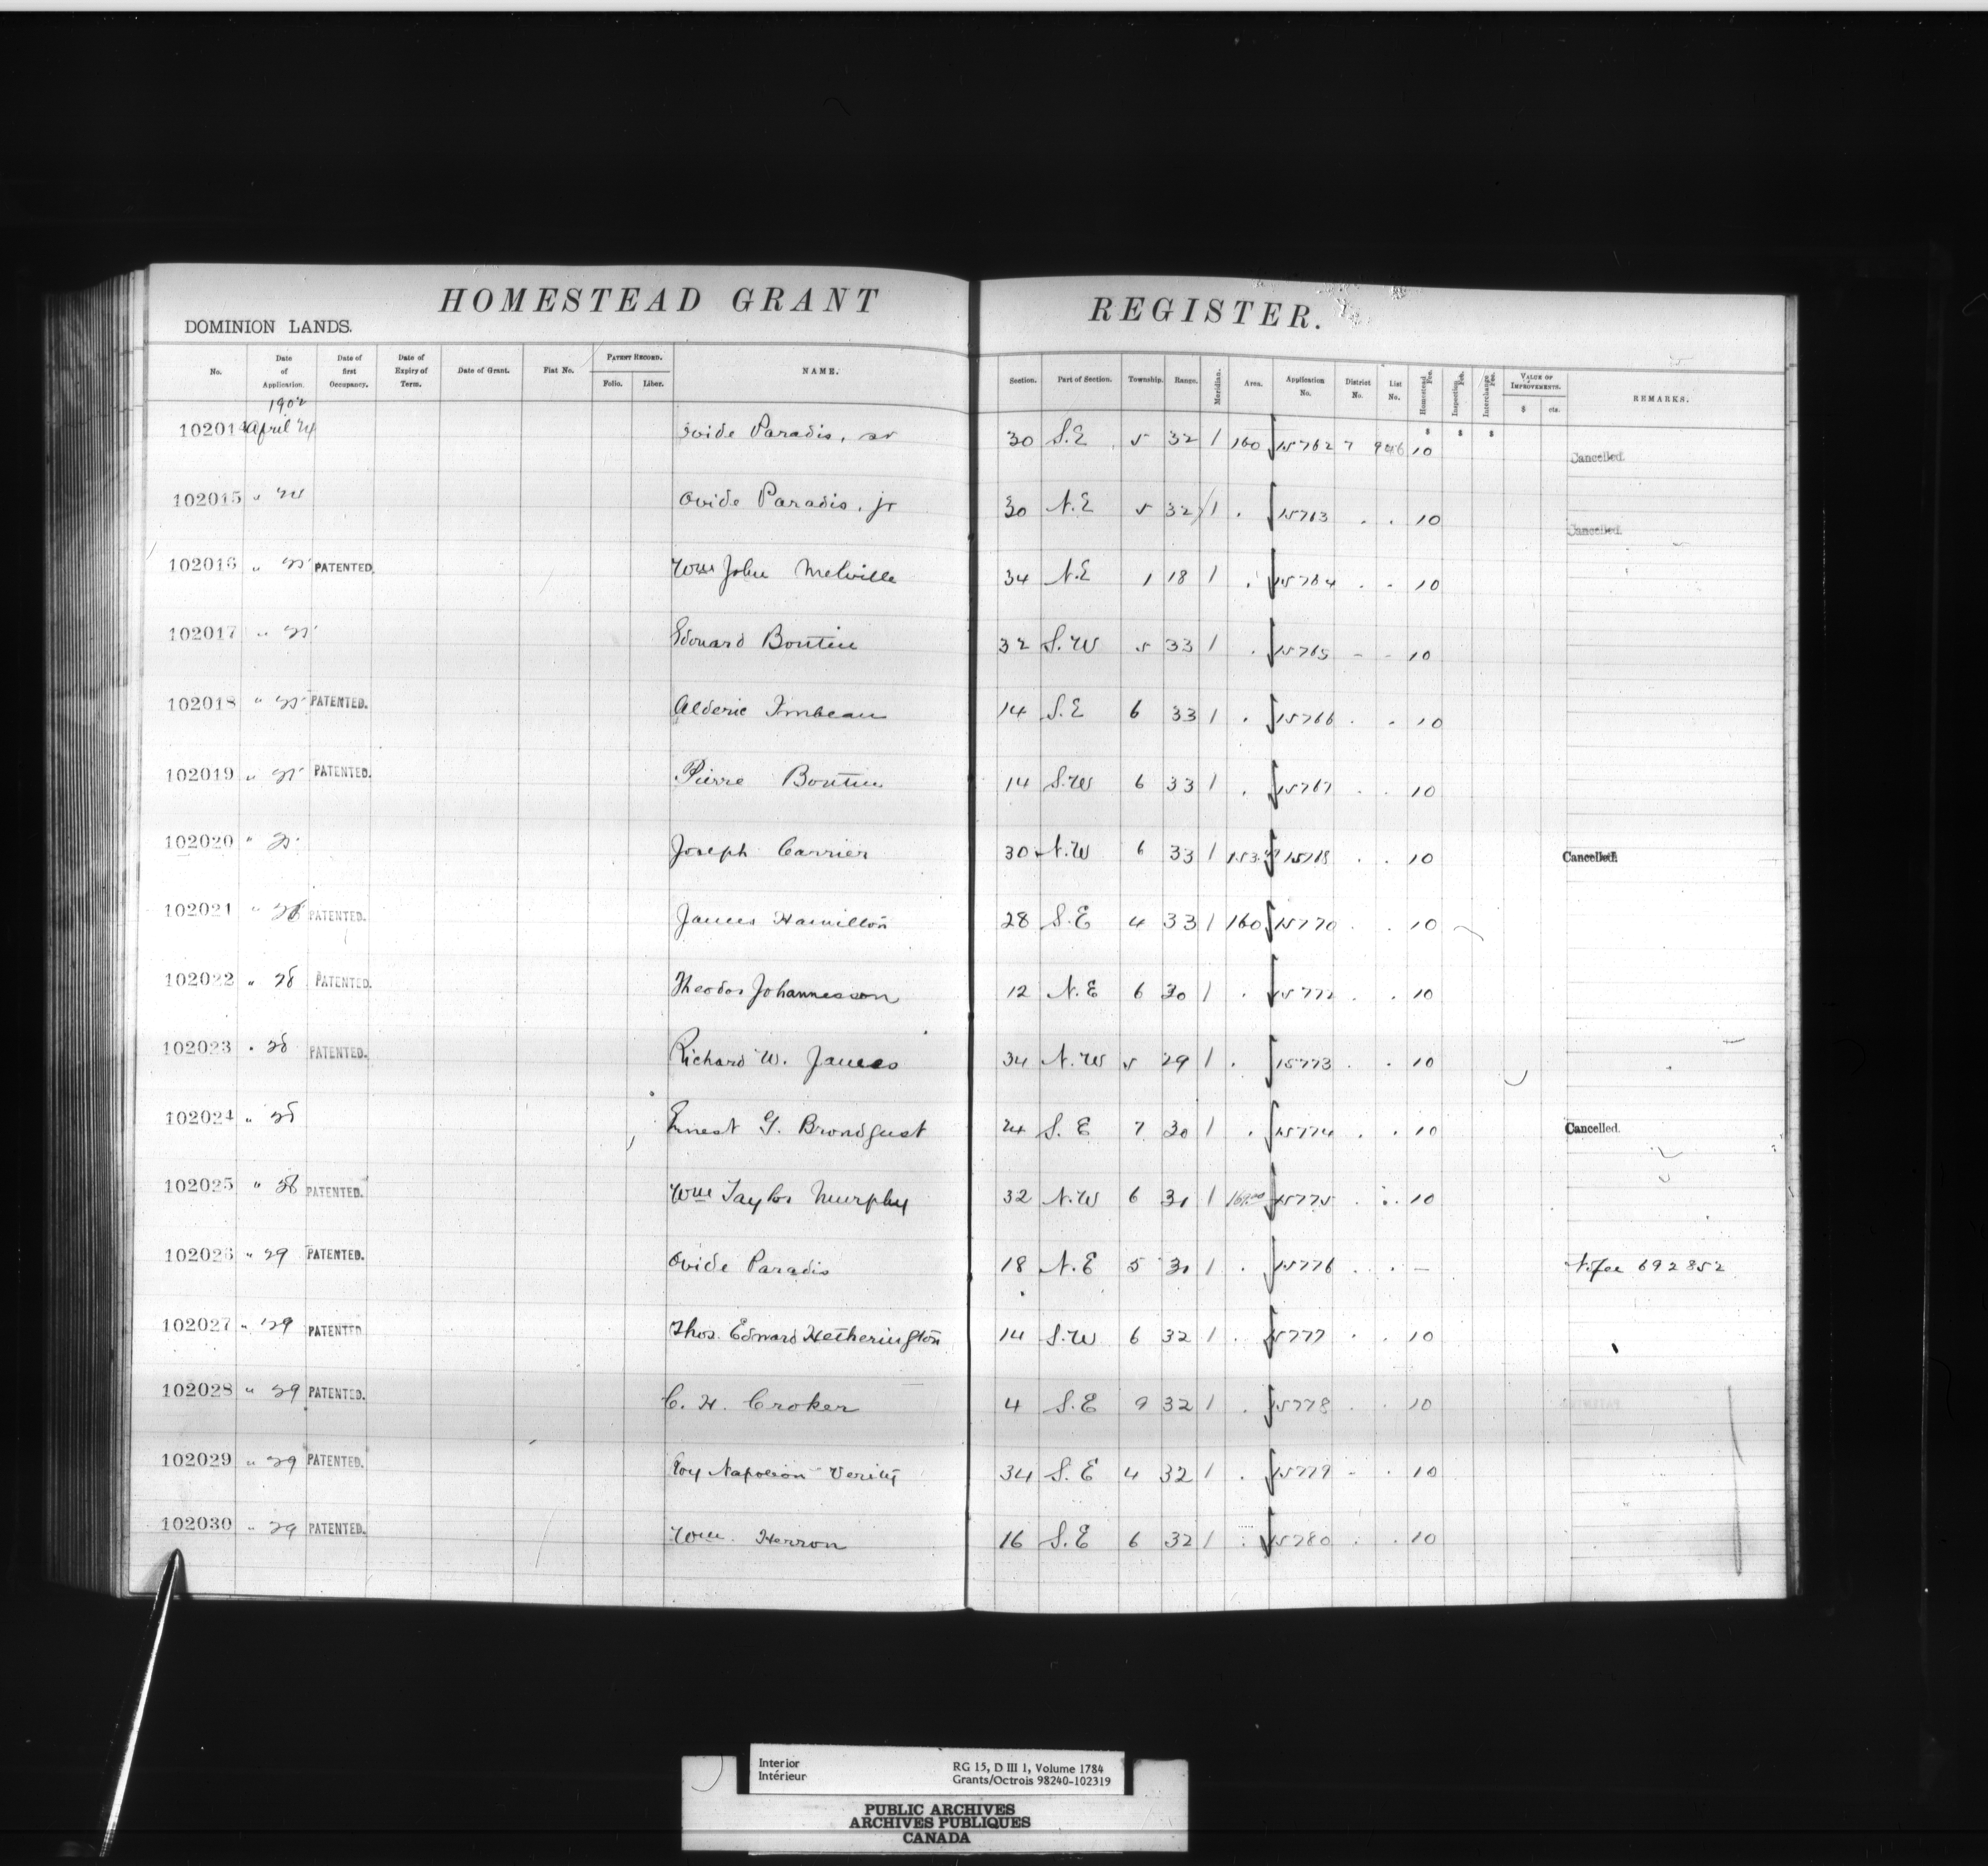 HOMESTEAD GRANT REGISTER.
DOMINION LANDS.
No. Date of Application. Date of first Occupancy. Date of Expiry of Term. Date of Grant. Fiat No. PATENT RECORD. Folio. Liber. NAME. Section. Part of Section. Township. Range. Meridian. Area. Application No. District No. List No. Homestead Fee. Inspection Fee. Interchange Fee. VALUE OF IMPROVEMENTS. $ cts. REMARKS.
1902
102014 April 24 Ovide Paradis, sr 30 S.E 5 32 1 160 15762 7 946 10 Cancelled.
102015 " Ovide Paradis, jr 30 N.E 5 32 1 . 15763 . . 10 Cancelled.
102016 " 25 PATENTED. Wm John Melville 34 N.E 1 18 1 . 15764 . . 10
102017 " 25 Edouard Boutin 32 S.W 5 33 1 . 15765 - - 10
102018 " 25 PATENTED. Alderic 14 S.E 6 33 1 . 15766 . . 10
102019 " 25 PATENTED. Pierre Boutin 14 S.W 6 33 1 . 15767 . . 10
102020 " Joseph Carrier 30 N.W 6 33 1 . . 10 Cancelled.
102021 " 26 PATENTED. James Hamilton 28 S.E 4 33 1 160 15770 . . 10
102022 " 28 PATENTED. Theodor Johannesson 12 N.E 6 30 1 . . . 10
102023 " 28 PATENTED. Richard W. James 34 N.W 5 29 1 . 15773 . . 10
102024 " 28 Ernest G. Brondgust 24 S.E 7 30 1 . 15774 . . 10 Cancelled.
102025 " 28 PATENTED. Wm Taylor Murphy 32 N.W 6 31 1 15775 . . 10
102026 " 29 PATENTED. Ovide Paradis 18 N.E 5 31 1 . 15776 . . — 692852
102027 " 29 PATENTED Thos. Edward Hetherington 14 S.W 6 32 1 . 15777 . . 10
102028 " 29 PATENTED. C. H. Croker 4 S.E 9 32 1 . 15778 . . 10
102029 " 29 PATENTED. Roy Napoleon Verity 34 S.E 4 32 1 . 15779 - . 10
102030 " 29 PATENTED. Wm. Herron 16 S.E 6 32 1 . 15780 . . 10
Interior
Intérieur
RG 15, D III 1, Volume 1784
Grants/Octrois 98240-102319
PUBLIC ARCHIVES
ARCHIVES PUBLIQUES
CANADA